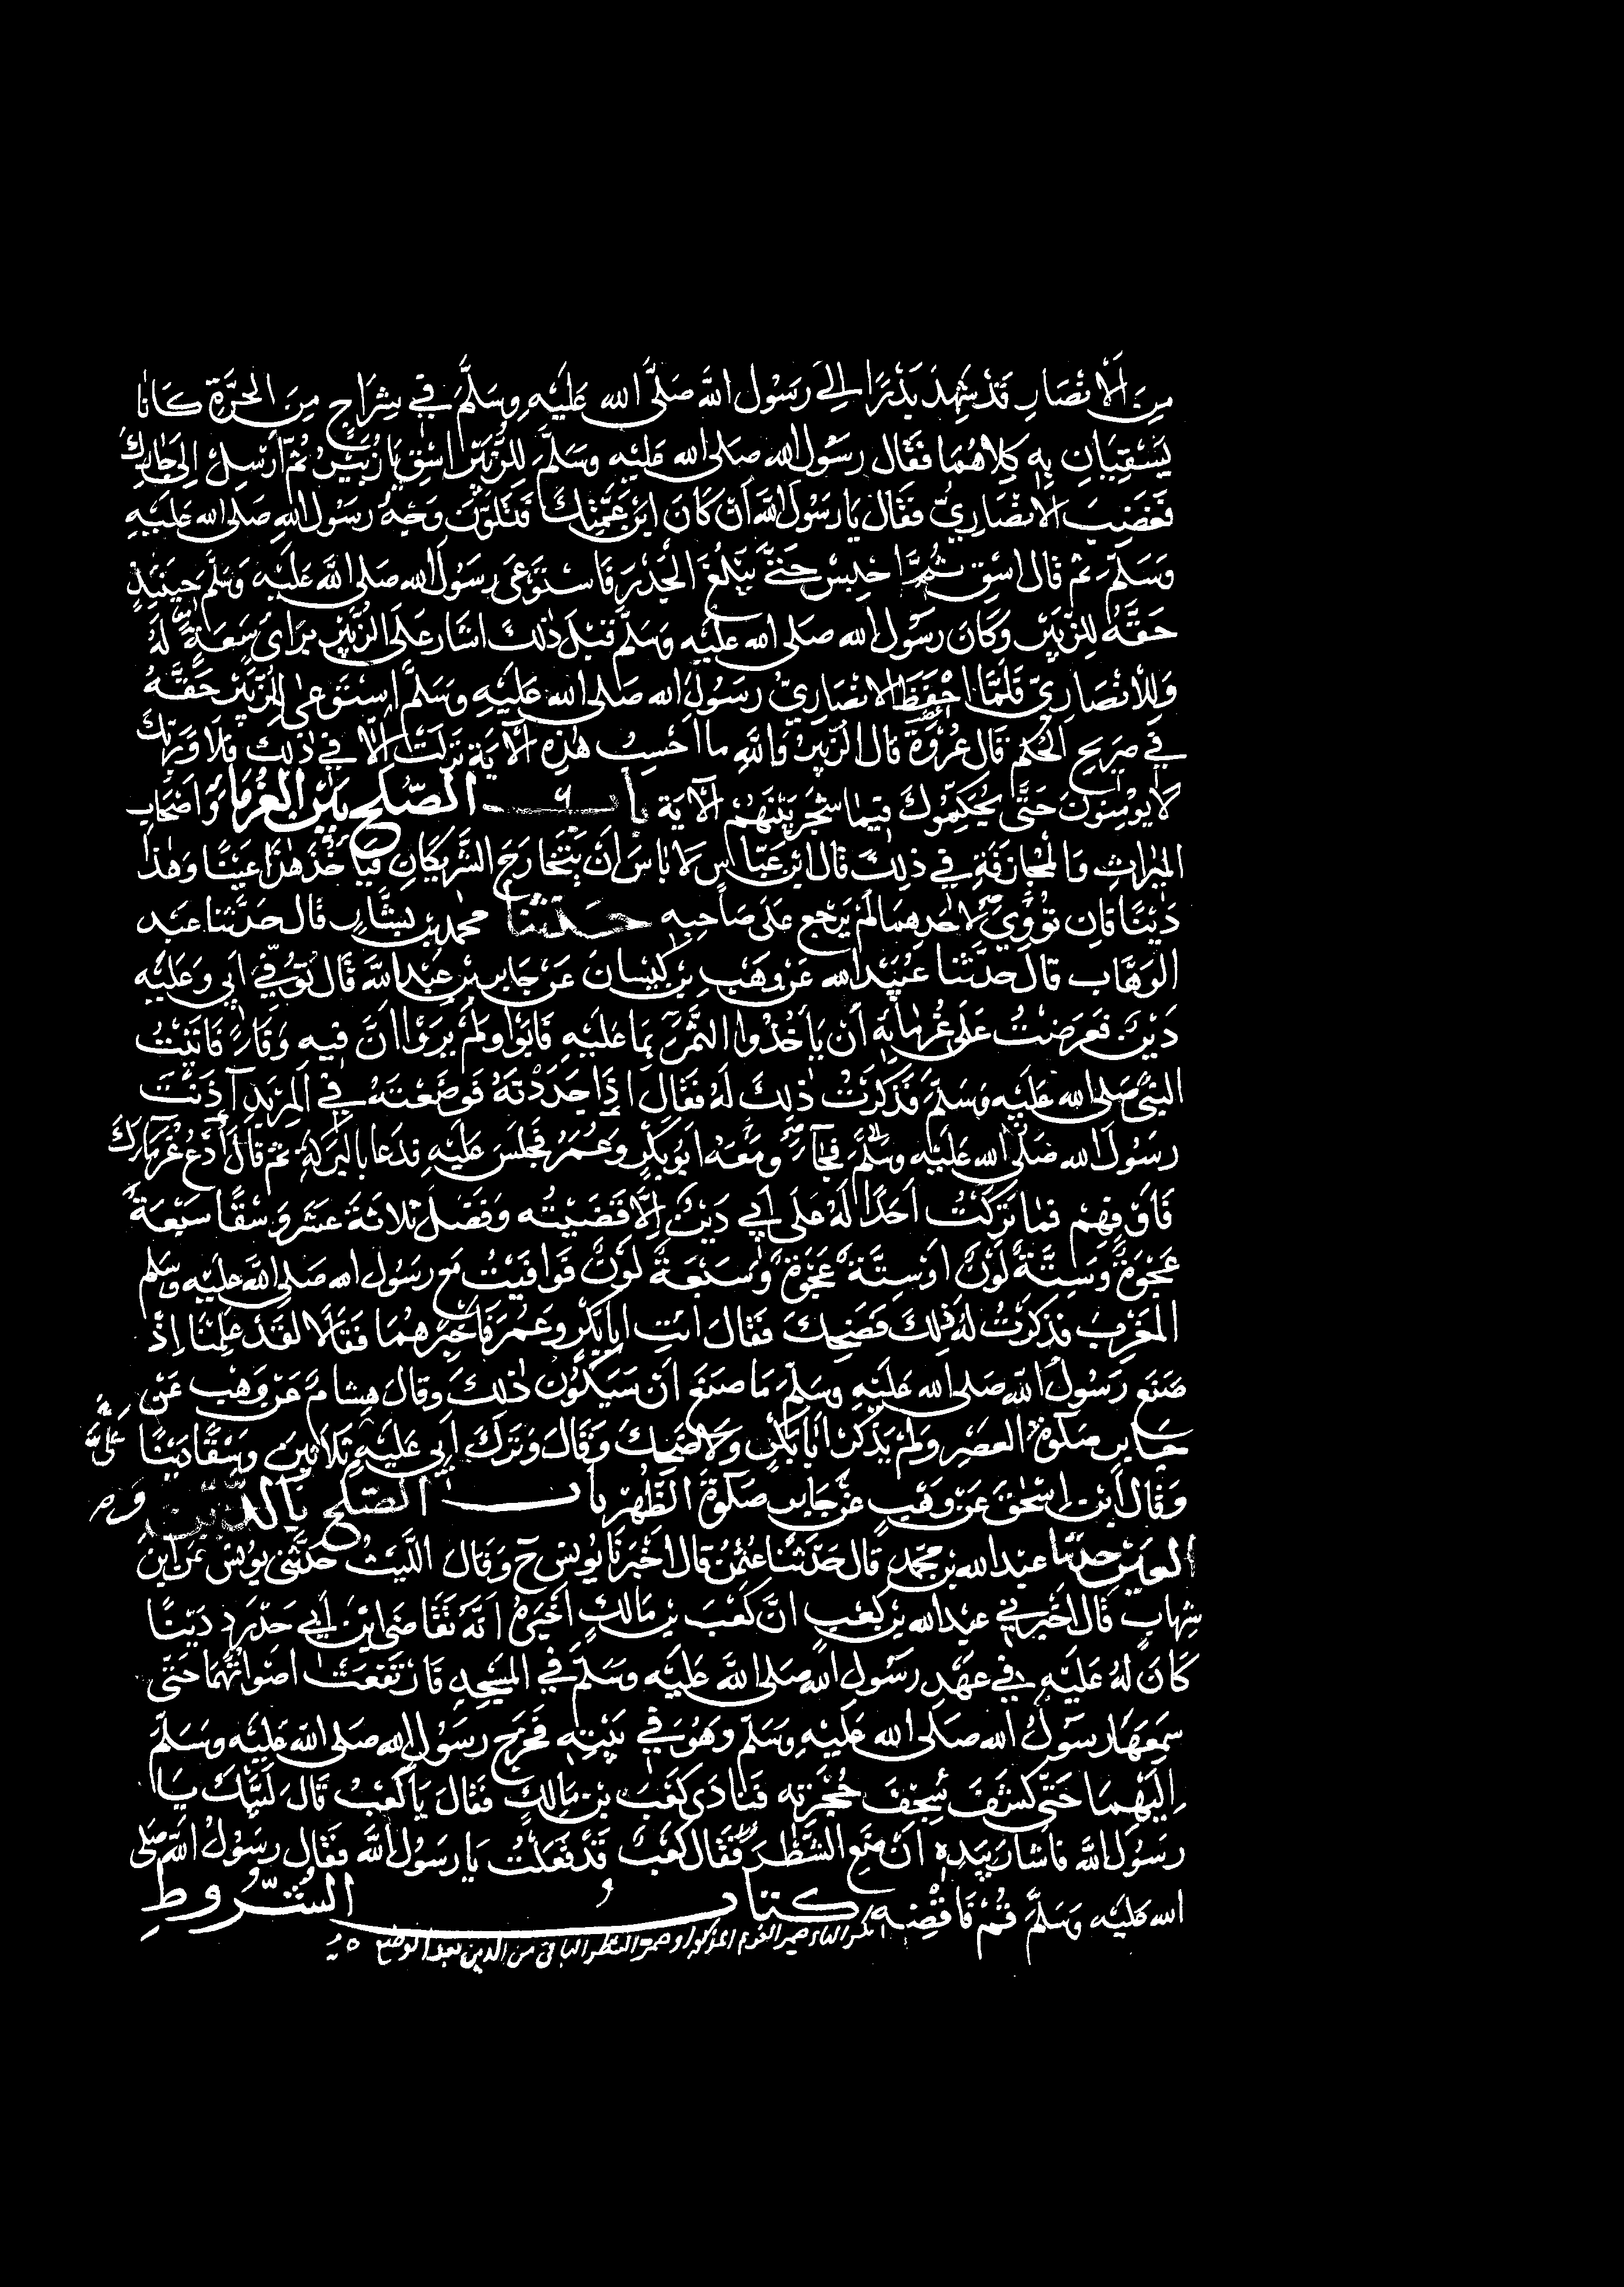 مِنَ الْاَنْصَارِ قَدْ شَهِدَ بَدْرًا اِلٰى رَسُوْلِ اللّٰهِ صَلَّى الله عَلَيْهِ وَسَلَّمَ فِي شِرَاجٍ مِنَ الْحَرَّةِ كَانَا
يَسْقِيَانِ بِهِ كِلَاهُمَا فَقَال رسُوْلُ الله صلى الله عليه وسَلَّمَ لِلزُّبَيْرِ اسْقِ يَا زُبَيْرُ ثُمَّ اَرْسِلْ اِلَى جَارِكَ
فَغَضِبَ الْانْصَارِيُّ فَقَال يَا رَسُوْلَ اللّٰهِ اَنْ كَانَ ابْنَ عَمَّتِكَ فَتَلَوَّنَ وَجْهُ رَسُوْلِ اللهِ صَلى الله عَلَيْهِ
وَسَلَّمَ ثم قَال اسْقِ ثُمَّ احْبِسْ حَتّٰى يَبْلُغَ الْجَدْرَ فَاسْتَوْعَى رسُوْلُ الله صَلى اللّٰه عَلَيْهِ وَسَلَّمَ حِيْنَئِذٍ
حَقَّهُ لِلزُّبَيْرِ وَكَانَ رسُوْلُ الله صَلى الله عليْهِ وَسَلَّمَ قَبْلَ ذٰلِكَ اشَارَ عَلَى الزُّبَيْرِ بِرَأىٍ سَعَةٍ لَهُ
وَلِلْاَنْصَارِيِّ فَلَمَّا احْفَظَ الْانْصَارِيُّ رسُوْلَ الله صَلى الله عَلَيْهِ وسَلَّمَ اسْتَوْعٰى لِلزُّبَيْرِ حَقَّهُ
فِي صَرِيْحِ الْحُكْمِ قَال عُرْوَةُ قَال الزُّبَيْرُ وَاللّٰهِ ما احْسِبُ هٰذِهِ الْآيَةَ نَزَلَتْ اِلَّا فِي ذٰلِكَ فَلَا وَرَبِّكَ
لَا يُوْمِنُوْنَ حَتّٰى يُحَكِّمُوْكَ فِيْمَا شَجَرَ بَيْنَهُمْ الْآيَة بابُ الصُّلْحِ بَيْنَ الْغُرَمَاءِ وَاَصْحَابِ
المِيْرَاثِ وَالْمُجَازَفَةِ فِي ذٰلِكَ قَال ابْنُ عَبَّاسٍ لَا بَاسَ اَنْ يَتَخَارَجَ الشَّرِيْكَانِ فَيَاْخُذَ هٰذَا عَيْنًا وَهٰذَا
دَيْنًا فَاِنْ تَوِيَ لِاَحَدِهِمَا لَمْ يَرْجِعْ عَلٰى صَاحِبِهِ حَدَّثَنَا محمد بن بَشَّارٍ قَال حَدَّثَنَا عَبْد
الوَهَّاب قَال حَدَّثَنَا عُبَيْدُ الله عَنْ وَهْبِ بْنِ كَيْسَانَ عَنْ جَابِرِ بْنِ عَبْدِ اللّٰهِ قَال تُوُفِّيَ اَبِي وَعَلَيْهِ
دَيْنٌ فَعَرَضْتُ عَلٰى غُرَمَائِهِ اَنْ يَاْخُذُوا التَّمْرَ بِمَا عَلَيْهِ فَاَبَوْا وَلَمْ يَرَوْا اَنَّ فِيهِ وَفَاءً فَاَتَيْتُ
النَّبِيَّ صَلى الله عَلَيْهِ وَسَلَّمَ فَذَكَرْتُ ذٰلِكَ لَهُ فَقَالَ اِذَا جَدَدْتَهُ فَوَضَعْتَهُ فِي الْمِرْبَدِ آذَنْتَ
رسُوْلَ الله صَلَّى الله عَلَيْهِ وَسَلَّمَ فَجَآءَ وَمَعَهُ اَبُوْ بَكْرٍ وَعُمَرُ فَجَلَسَ عَلَيْهِ فَدَعَا بِالْبَرَكَةِ ثم قَالَ ادْعُ غُرَمَاءَكَ
فَاَوْفِهِمْ فَمَا تَرَكْتُ اَحَدًا لَهُ عَلٰى اَبِي دَيْنٌ اِلَّا قَضَيْتُه وَفَضَلَ ثَلَاثَةَ عَشَرَ وَسْقًا سَبْعَةٌ
عَجْوَةٌ وَسِتَّةٌ لَوْنٌ اَوْ سِتَّةٌ عَجْوَةٌ وَسَبْعَةٌ لَوْنٌ فَوَافَيْتُ مَعَ رسُوْلِ الله صَلى اللّٰه عليْهِ وسَلم
الْمَغْرِبَ فَذَكَرْتُ لَهُ ذٰلِكَ فَضَحِكَ فَقَالَ ائْتِ اَبَا بَكْرٍ وَعُمَرَ فَاَخْبِرْهُمَا فَقَالَا لَقَدْ عَلِمْنَا اِذْ
صَنَعَ رَسُوْلُ اللّٰه صَلى الله عَلَيْهِ وَسَلَّمَ مَا صَنَعَ اَنْ سَيَكُوْنُ ذٰلِكَ وقَالَ هِشَامٌ عَنْ وَهْبٍ عَنْ
جَابِرٍ صَلٰوةَ العَصْرِ وَلَمْ يَذْكُرْ اَبَا بَكْرٍ وَلَا ضَحِكَ وَقَالَ وَتَرَكَ اَبِي عَلَيْهِ ثَلَاثِيْنَ وَسْقًا دَيْنًا
وَقَالَ ابْنُ اِسْحٰقَ عَنْ وَهْبٍ عَنْ جَابِرٍ صَلٰوةَ الظُّهْرِ بابُ الصُّلْحِ بِالدَّيْنِ وَ
العَيْنِ حدثنا عبد الله بن محمد قَالَ حَدَّثَنَا عُثْمٰنُ قَالَ اَخْبَرَنَا يُوْنُسُ ح وَقَال اللَّيْثُ حَدَّثَنِى يُوْنُسُ عَنِ ابْنِ
شِهَابٍ قَال اَخْبَرَنِي عبْدُ الله بْنُ كَعْبٍ اَنَّ كَعْبَ بْنَ مَالِكٍ اَخْبَرَهُ اَنَّهُ تَقَاضَى ابْنَ اَبِي حَدْرَدٍ دَيْنًا
كَانَ لَهُ عَلَيْهِ فِي عَهْدِ رسُوْلِ الله صَلى اللّٰه عَلَيْهِ وَسَلَّمَ فِي المَسْجِدِ فَارْتَفَعَتْ اَصْوَاتُهُمَا حَتّٰى
سَمِعَهَا رسُوْلُ اللّٰه صَلَّى الله عَلَيْهِ وَسَلَّمَ وَهُوَ فِي بَيْتِهِ فَخَرَجَ رسُوْلُ الله صَلى اللّٰه عَلَيْهِ وسَلَّمَ
اِلَيْهِمَا حَتّٰى كَشَفَ سِجْفَ حُجْرَتِهِ فَنَادَى كَعْبَ بْنَ مَالِكٍ فَقَالَ يَا كَعْبُ قَالَ لَبَّيْكَ يَا
رسُوْلَ اللّٰهِ فَاَشَارَ بِيَدِهِ اَنْ ضَعِ الشَّطْرَ فَقَال كَعْبٌ قَدْ فَعَلْتُ يَا رسُوْلَ اللّٰهِ فَقَال رسُوْلُ اللّٰهِ صَلى
الله عَليْهِ وَسَلَّمَ قُمْ فَاقْضِهِ كِتَابُ الشُّرُوْطِ
من الدين بعد الوضع